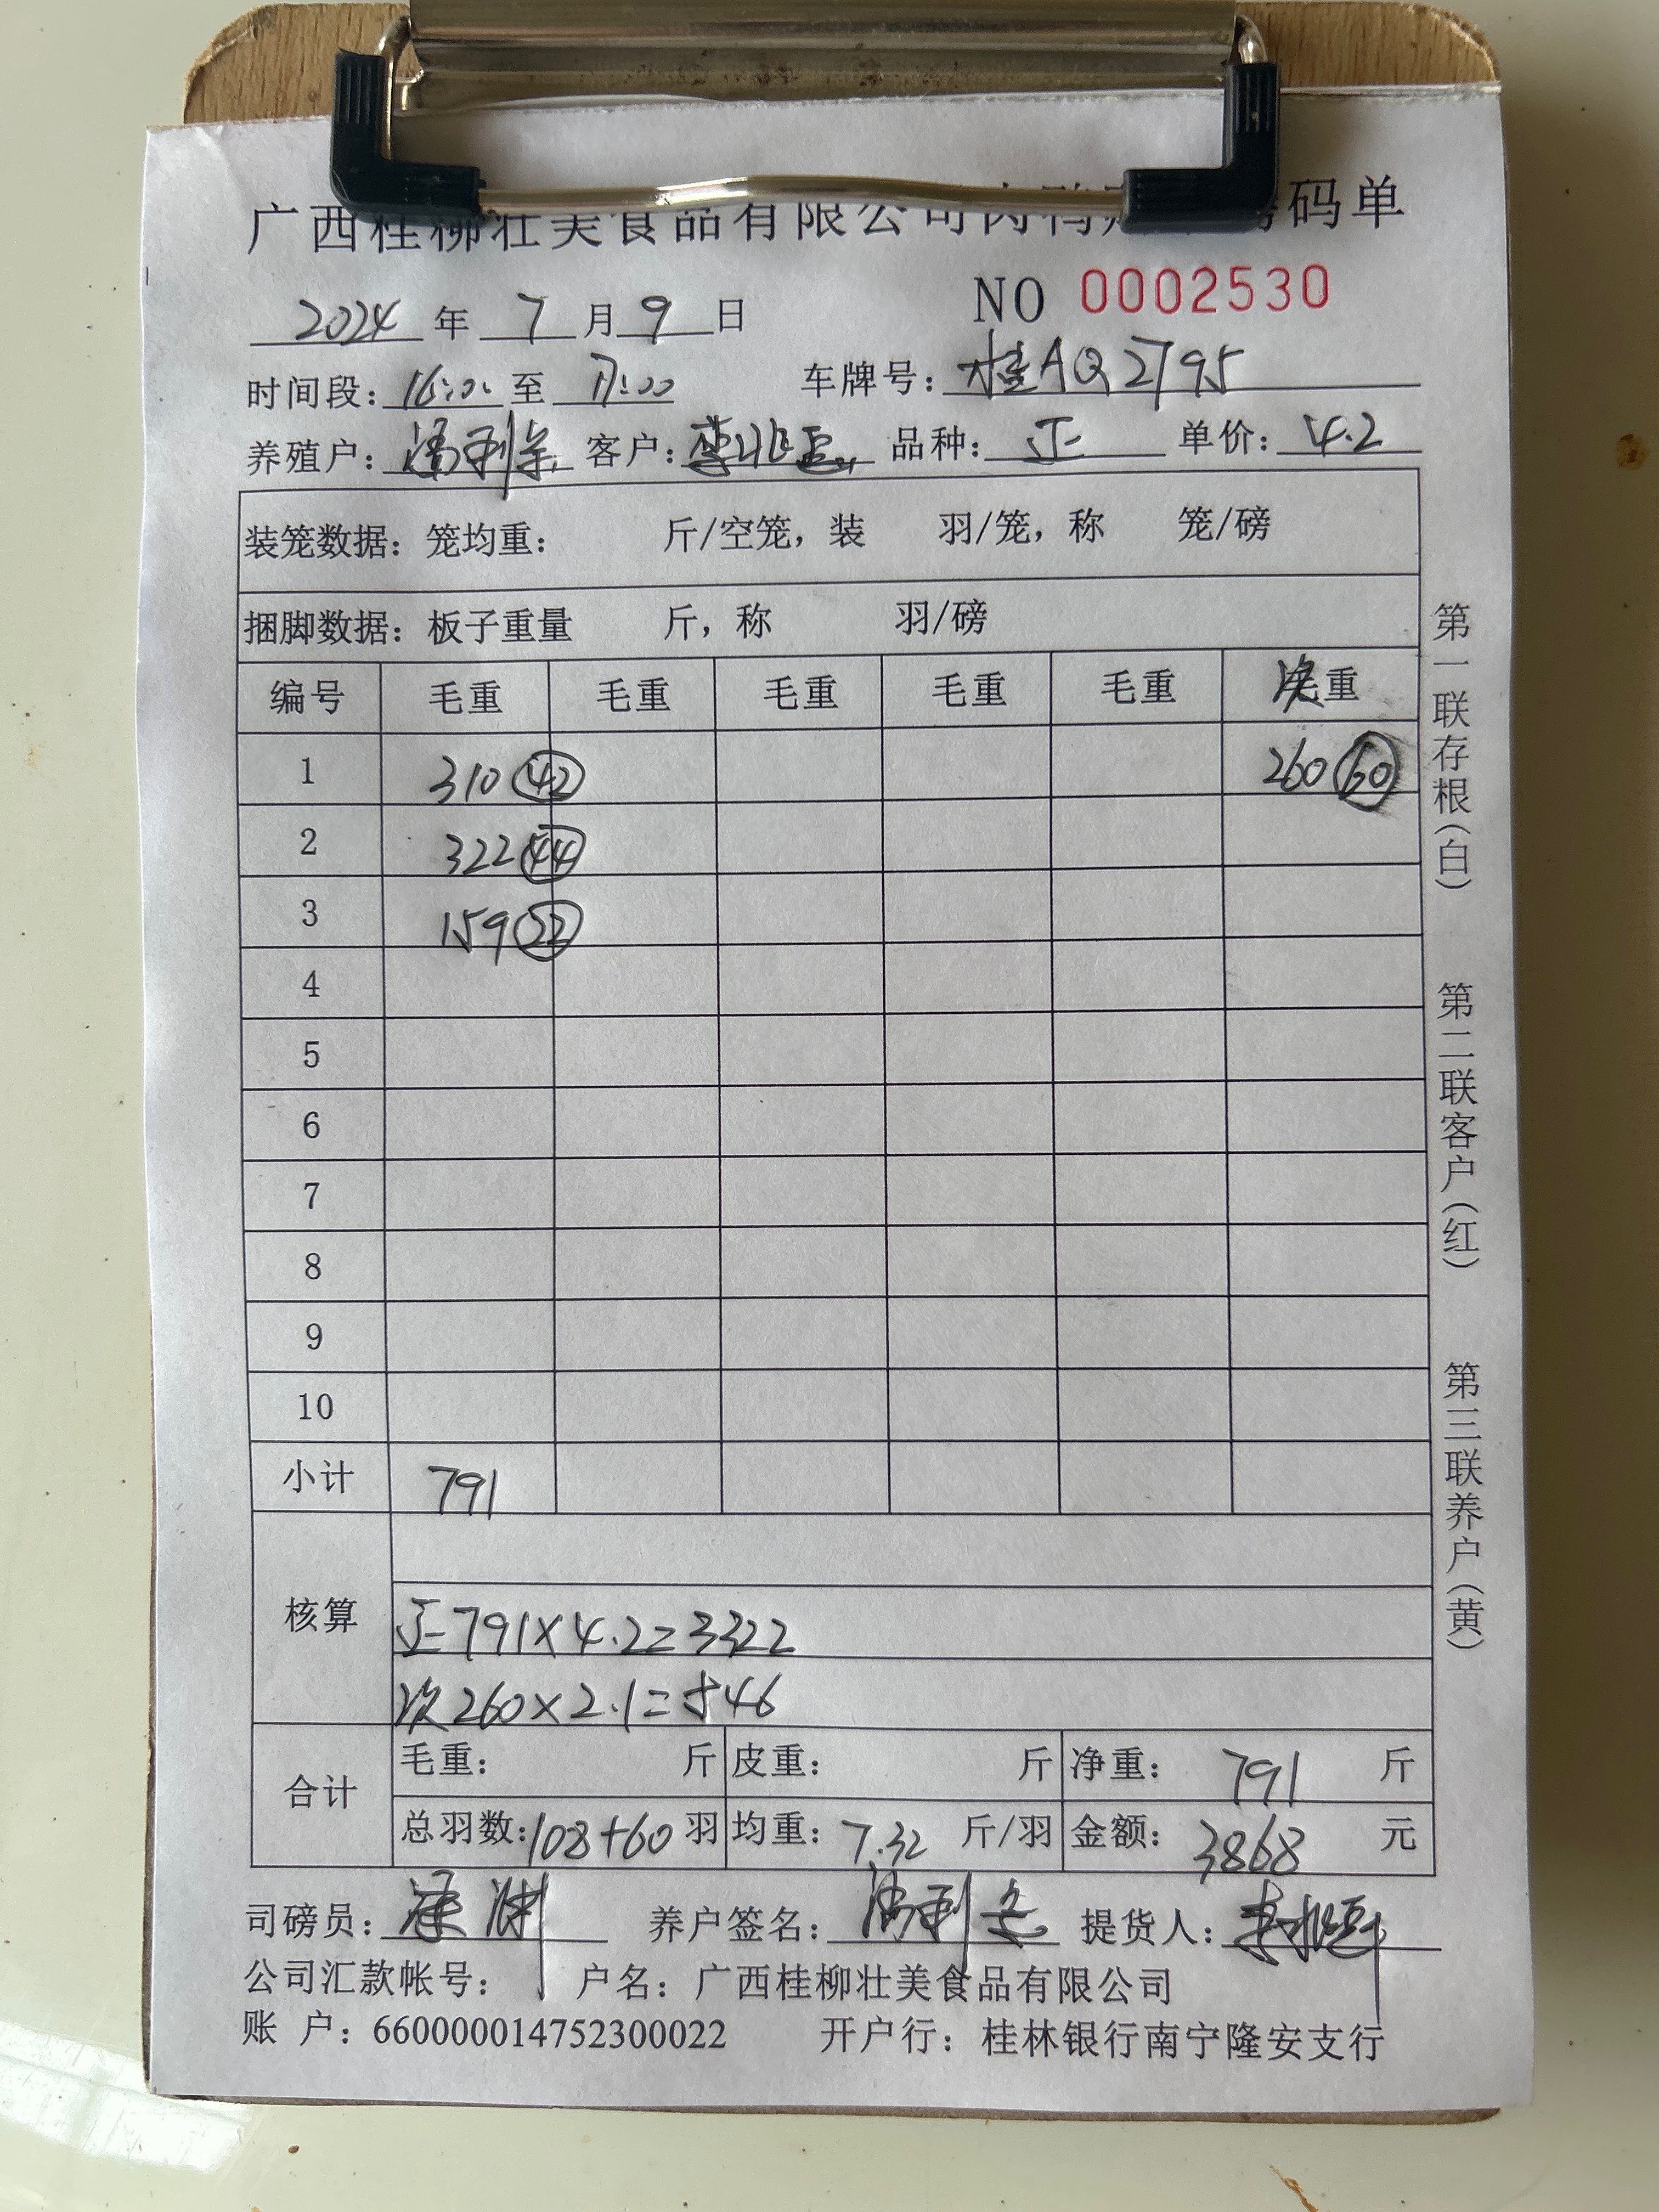 广西桂柳壮美食品有限公司肉鸭 码单
NO 0002530
2024 年 7 月 9 日
时间段: 16:00 至 17:00 车牌号: 桂AQ2795
养殖户: 客户: 品种: 正 单价: 4.2
装笼数据: 笼均重: 斤/空笼, 装 羽/笼, 称 笼/磅
捆脚数据: 板子重量 斤, 称 羽/磅
编号 毛重 毛重 毛重 毛重 毛重 次重
1 310 42 260 60
2 322 44
3 159 22
4
5
6
7
8
9
10
小计 791
核算
正 791×4.2=3322
次 260×2.1=546
合计
毛重: 斤 皮重: 斤 净重: 791 斤
总羽数: 108+60 羽 均重: 7.32 斤/羽 金额: 3868 元
司磅员: 养户签名: 提货人:
公司汇款帐号: 户名: 广西桂柳壮美食品有限公司
账 户: 660000014752300022 开户行: 桂林银行南宁隆安支行
第一联存根(白)
第二联客户(红)
第三联养户(黄)